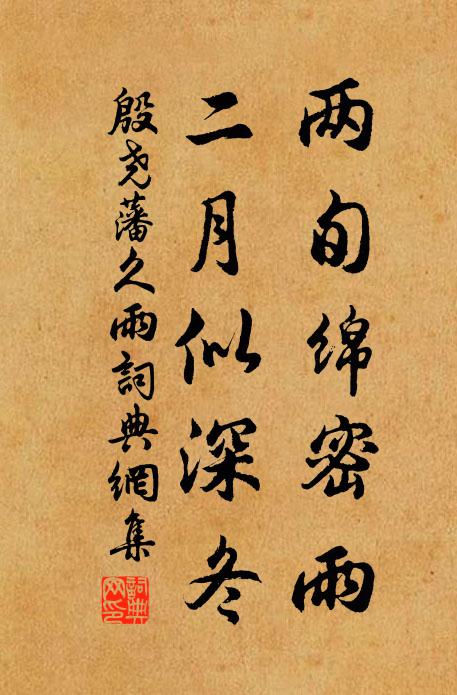 两旬绵密雨
二月似深冬
殷尧藩久雨詞典網集
詞典
网印